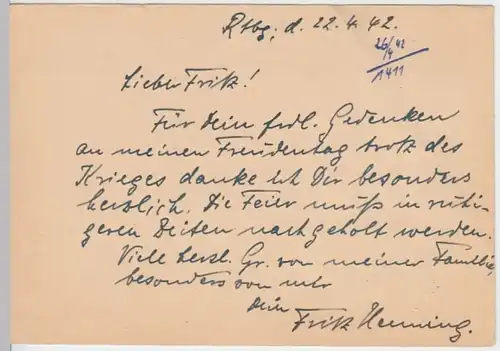 Rtbg., d. 22.4.42.
26/4 42
1411
Lieber Fritz!
Für Dein frdl. Gedenken
an meinen Freudentag trotz des
Krieges danke ich Dir besonders
herzlich. Die Feier muß in ruhi-
geren Zeiten nachgeholt werden.
Viele herzl. Gr. von meiner Familie,
besonders von mir
Dein
Fritz Henning.